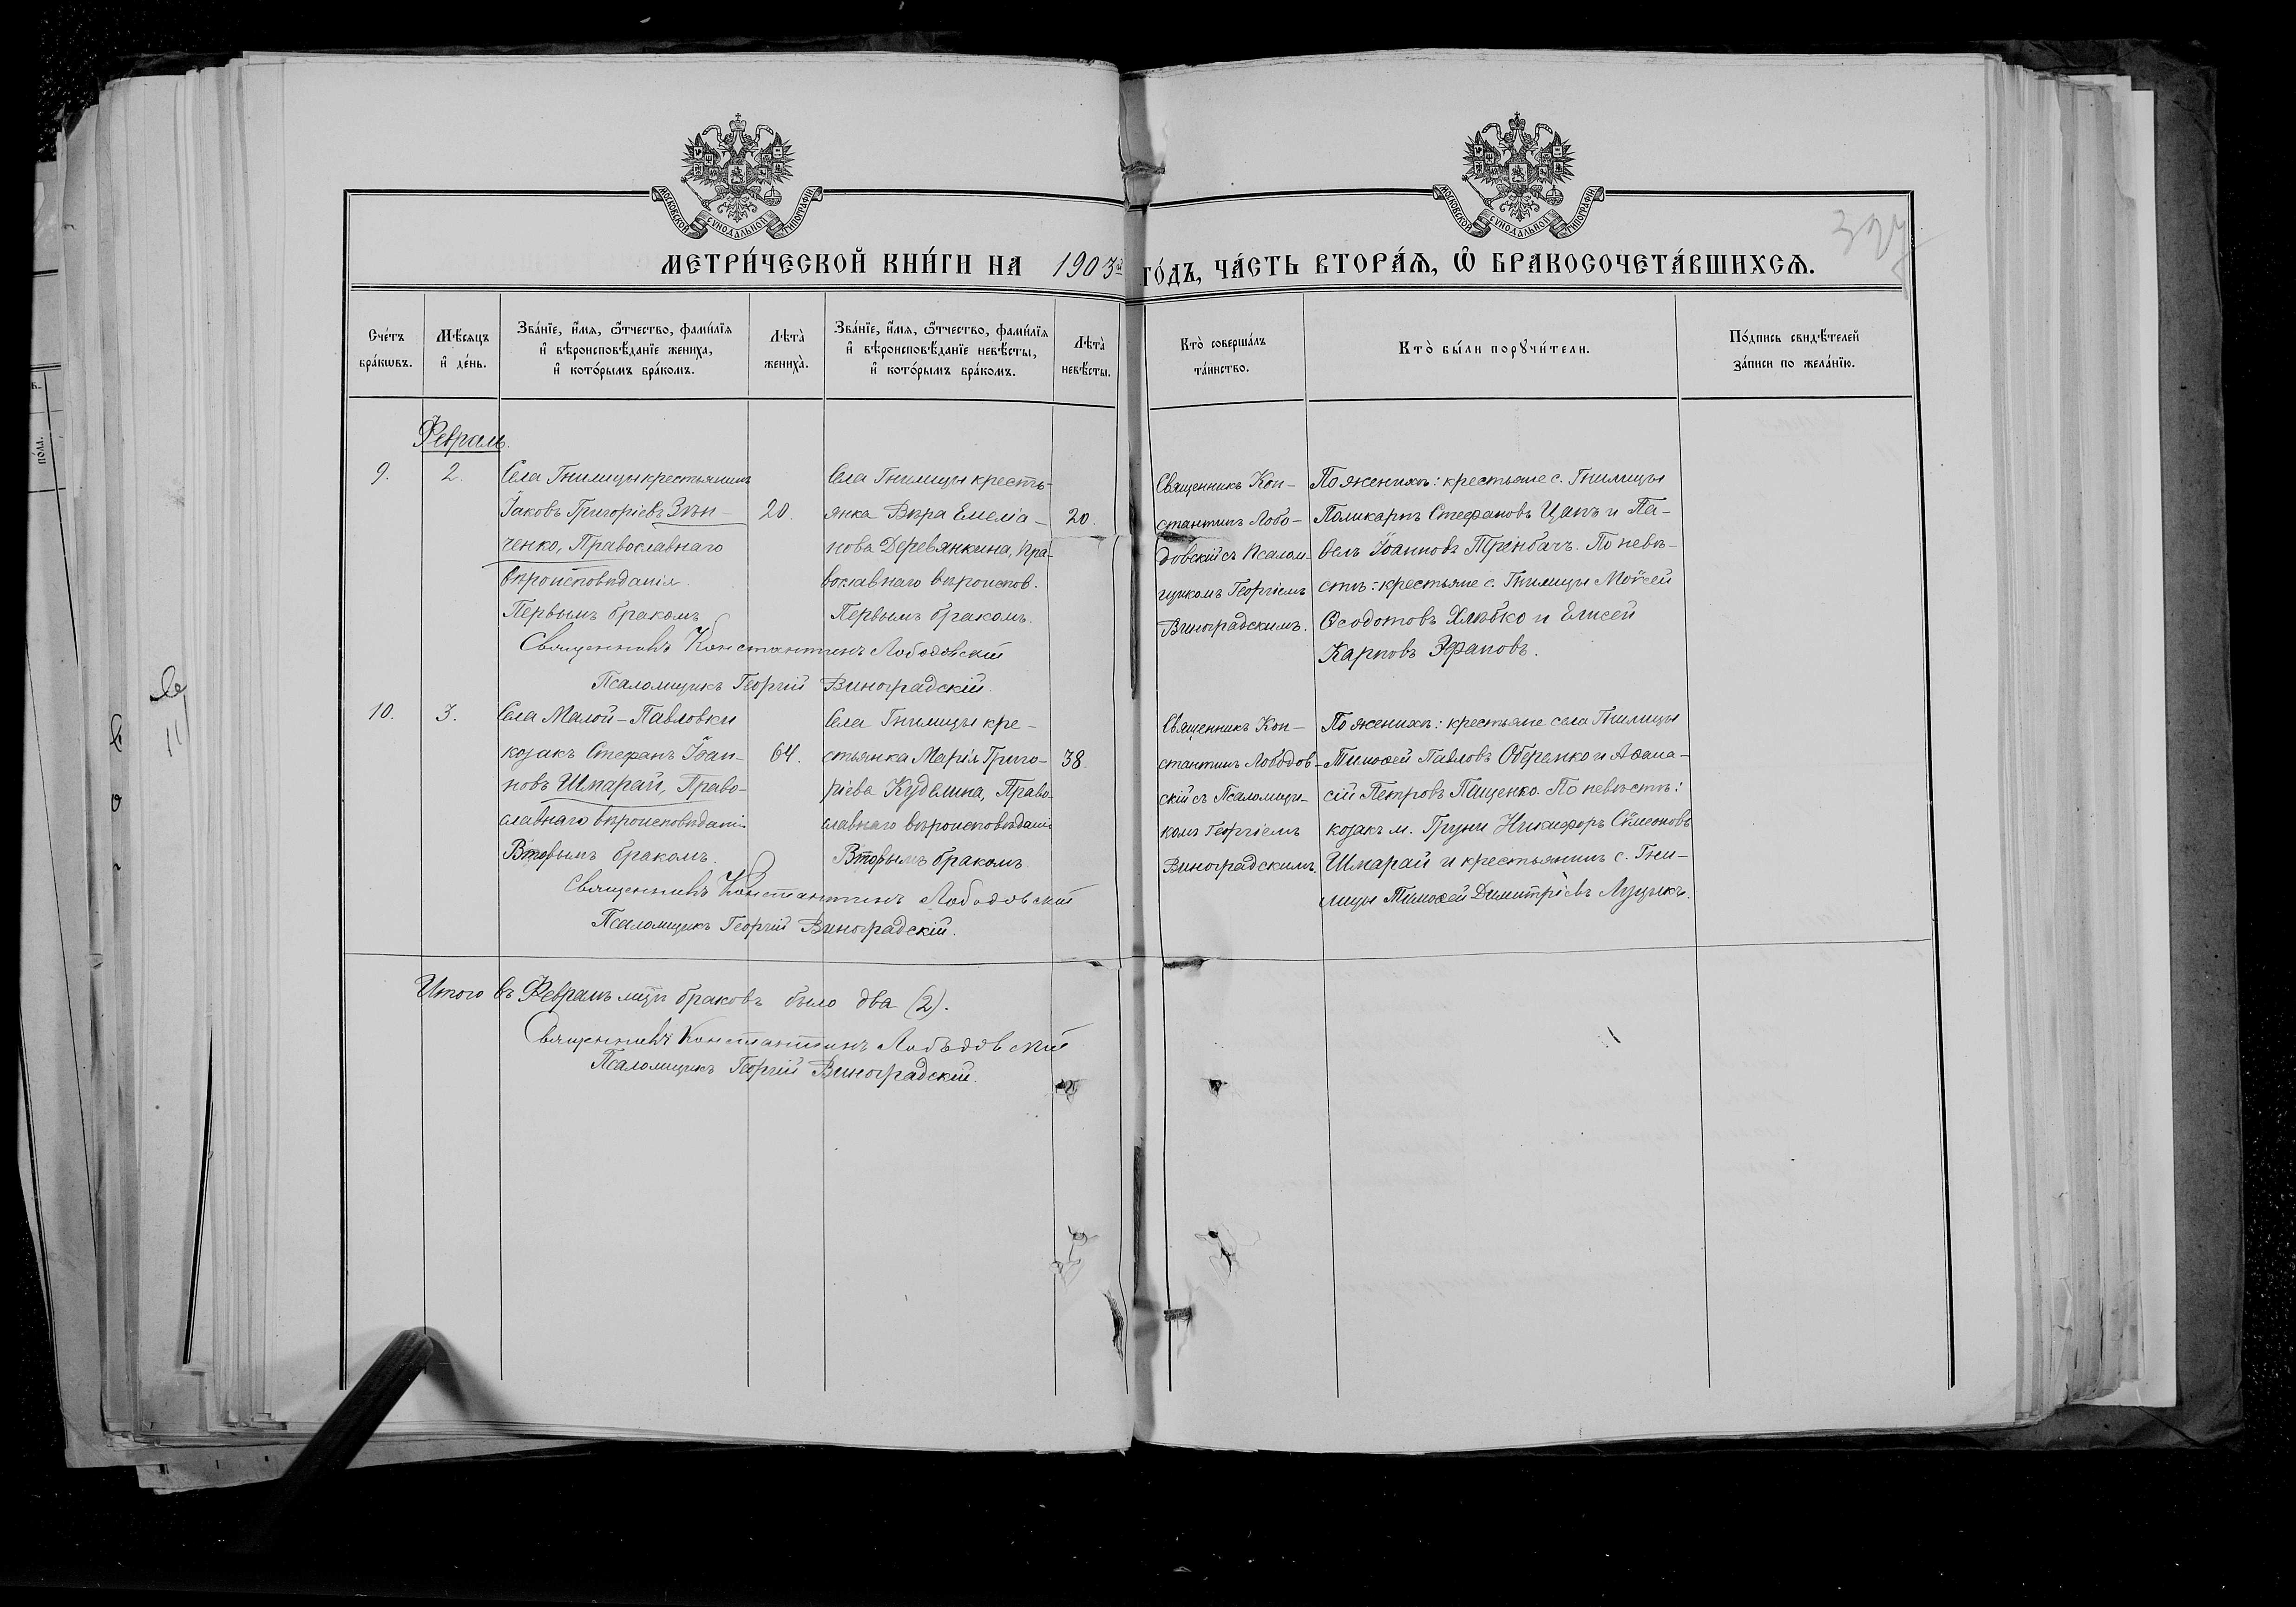 МОСКОВСКОЙ СѴНОДАЛЬНОЙ ТИПОГРАФІИ
МОСКОВСКОЙ СѴНОДАЛЬНОЙ ТИПОГРАФІИ
МЕТРИ́ЧЕСКОЙ КНИ́ГИ НА 1903й ГО́ДЪ, ЧА́СТЬ ВТОРА́Ѧ, Ѽ БРАКОСОЧЕТА́ВШИХСѦ.
Сче́тъ бра́кѡвъ.
Мѣ́сяцъ и҆ де́нь.
Зва́нїе, и҆́мѧ, ѻ҆́тчество, фами́лїѧ и҆ вѣроисповѣ́данїе жениха̀, и҆ кото́рымъ бра́комъ.
Лѣта̀ жениха̀.
Зва́нїе, и҆́мѧ, ѻ҆́тчество, фами́лїѧ и҆ вѣроисповѣ́данїе невѣ́сты, и҆ кото́рымъ бра́комъ.
Лѣта̀ невѣ́сты.
Кто̀ соверша́лъ та́инство.
Кто̀ бы́ли порꙋчи́тели.
По́дпись свидѣ́телей за́писи по жела́нїю.
Февраль.
9. 2.
Села Гнилицы крестьянинъ
Іаковъ Григоріевъ Зѣн-
ченко, Православнаго
вѣроисповѣданія.
Первымъ бракомъ
20.
Села Гнилицы кресть-
янка Вѣра Емеліа-
нова Деревянкина, Пра-
вославнаго вѣроиспов.
Первымъ бракомъ.
20.
Священникъ Кон-
стантинъ Лобо-
довскій съ Псалом-
щикомъ Георгіемъ
Виноградскимъ.
По женихѣ: крестьяне с. Гнилицы
Поликарпъ Стефановъ Цапъ и Па-
велъ Іоанновъ Тринбачъ. По невѣ-
стѣ: крестьяне с. Гнилицы Моѵсей
Ѳеодотовъ Хлѣбко и Елисей
Карповъ Эфановъ.
Священникъ Константинъ Лободовскій
Псаломщикъ Георгій Виноградскій.
10. 3.
Села Малой-Павловки
козакъ Стефанъ Іоан-
новъ Шмарай, Право-
славнаго вѣроисповѣданія
Вторымъ бракомъ.
64.
Села Гнилицы кре-
стьянка Марія Григо-
ріева Куделина, Право-
славнаго вѣроисповѣданія
Вторымъ бракомъ
38.
Священникъ Кон-
стантинъ Лободов-
скій съ Псаломщи-
комъ Георгіемъ
Виноградскимъ.
По женихѣ: крестьяне села Гнилицы
Тимоѳей Павловъ Оберемко и Аѳана-
сій Петровъ Пащенко. По невѣстѣ:
козакъ м. Груни Никифоръ Сѵмеоновъ
Шмарай и крестьянинъ с. Гни-
лицы Тимоѳей Димитріевъ Луцыкъ.
Священникъ Константинъ Лободовскій
Псаломщикъ Георгій Виноградскій.
Итого въ Февралѣ мцѣ браковъ было два (2).
Священникъ Константинъ Лободовскій
Псаломщикъ Георгій Виноградскій.